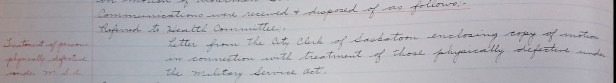 Communications were received & disposed of as follows:-
Referred to Health Committee:
Treatment of persons
physically defective
under M.S.A.
Letter from the City Clerk of Saskatoon enclosing copy of motion
in connection with treatment of those physically defective under
the Military Service Act.